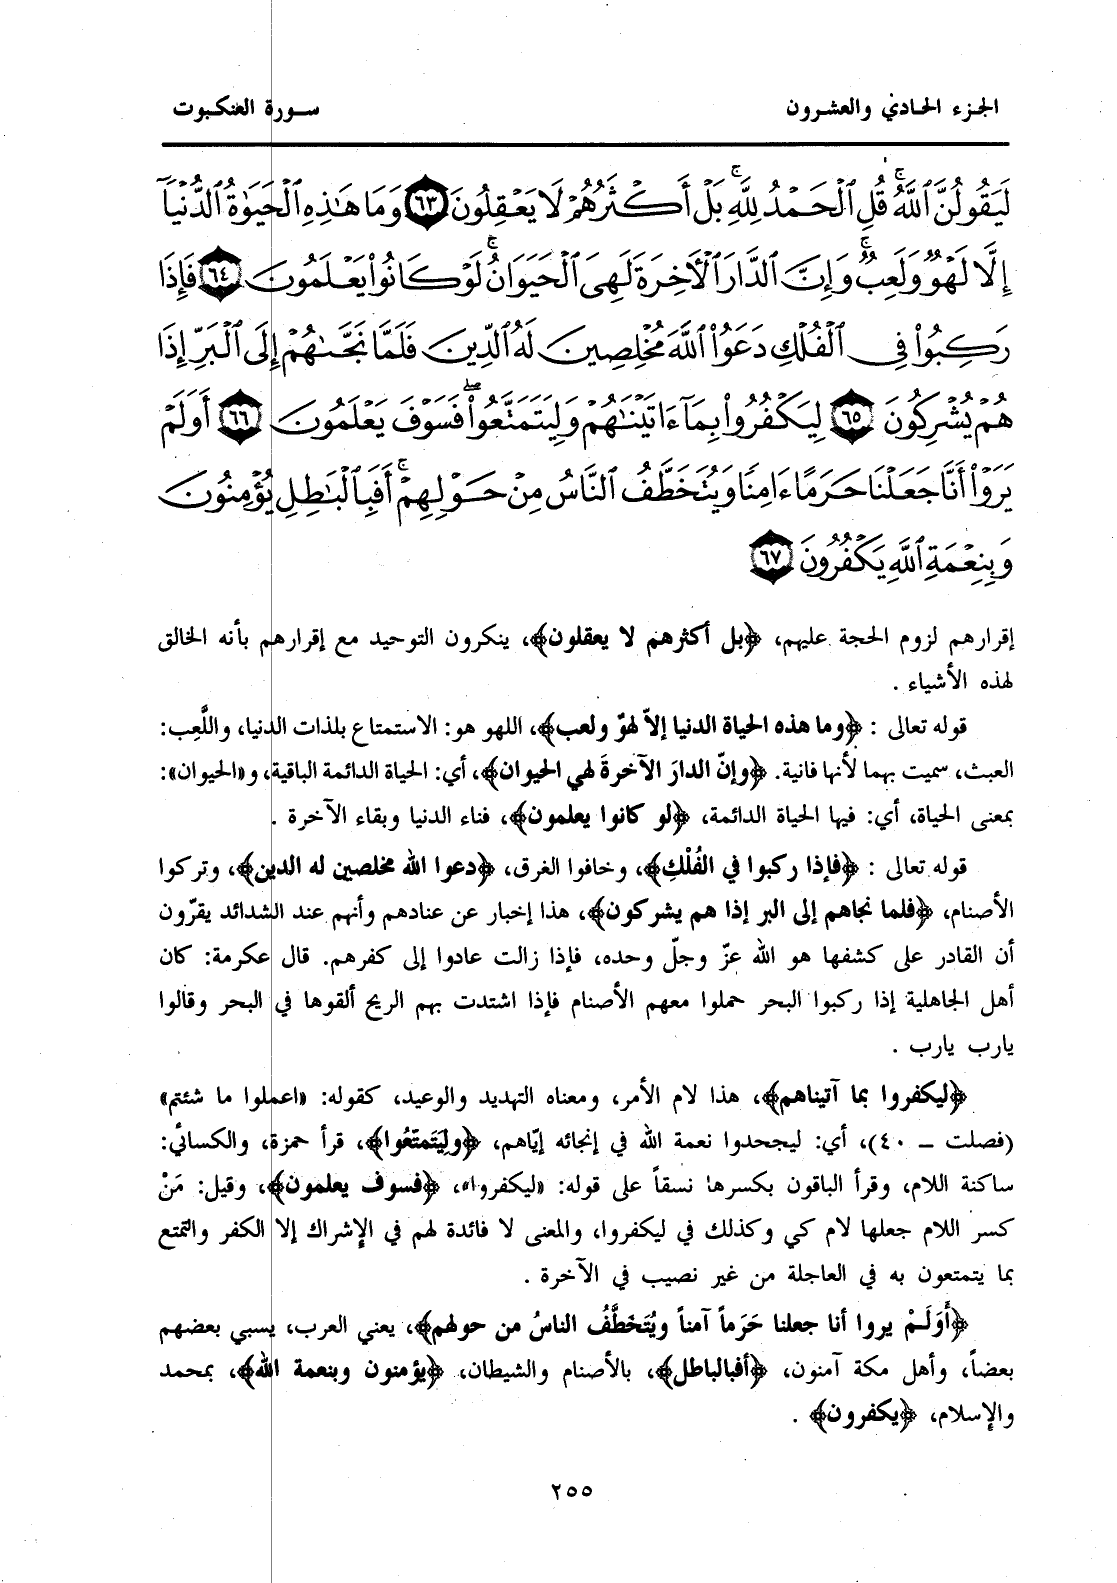 الجزء الحادي والعشرون
سورة العنكبوت
لَيَقُولُنَّ ٱللَّهُ ۚ قُلِ ٱلْحَمْدُ لِلَّهِ ۚ بَلْ أَكْثَرُهُمْ لَا يَعْقِلُونَ ٦٣ وَمَا هَٰذِهِ ٱلْحَيَوٰةُ ٱلدُّنْيَآ
إِلَّا لَهْوٌ وَلَعِبٌ ۚ وَإِنَّ ٱلدَّارَ ٱلْآخِرَةَ لَهِىَ ٱلْحَيَوَانُ ۚ لَوْ كَانُوا۟ يَعْلَمُونَ ٦٤ فَإِذَا
رَكِبُوا۟ فِى ٱلْفُلْكِ دَعَوُا۟ ٱللَّهَ مُخْلِصِينَ لَهُ ٱلدِّينَ فَلَمَّا نَجَّىٰهُمْ إِلَى ٱلْبَرِّ إِذَا
هُمْ يُشْرِكُونَ ٦٥ لِيَكْفُرُوا۟ بِمَآ ءَاتَيْنَٰهُمْ وَلِيَتَمَتَّعُوا۟ ۖ فَسَوْفَ يَعْلَمُونَ ٦٦ أَوَلَمْ
يَرَوْا۟ أَنَّا جَعَلْنَا حَرَمًا ءَامِنًا وَيُتَخَطَّفُ ٱلنَّاسُ مِنْ حَوْلِهِمْ ۚ أَفَبِٱلْبَٰطِلِ يُؤْمِنُونَ
وَبِنِعْمَةِ ٱللَّهِ يَكْفُرُونَ ٦٧
إقرارهم لزوم الحجة عليهم، ﴿بل أكثرهم لا يعقلون﴾، ينكرون التوحيد مع إقرارهم بأنه الخالق
لهذه الأشياء .
قوله تعالى : ﴿وما هذه الحياة الدنيا إلاّ لهوٌ ولعب﴾، اللهو هو: الاستمتاع بلذات الدنيا، واللَّعِب:
العبث، سميت بهما لأنها فانية. ﴿وإنّ الدارَ الآخرةَ لهي الحيوان﴾، أي: الحياة الدائمة الباقية، و«الحيوان»:
بمعنى الحياة، أي: فيها الحياة الدائمة، ﴿لو كانوا يعلمون﴾، فناء الدنيا وبقاء الآخرة .
قوله تعالى : ﴿فإذا ركبوا في الفُلْكِ﴾، وخافوا الغرق، ﴿دعوا الله مخلصين له الدين﴾، وتركوا
الأصنام، ﴿فلما نجاهم إلى البر إذا هم يشركون﴾، هذا إخبار عن عنادهم وأنهم عند الشدائد يقرّون
أن القادر على كشفها هو الله عزّ وجلّ وحده، فإذا زالت عادوا إلى كفرهم. قال عكرمة: كان
أهل الجاهلية إذا ركبوا البحر حملوا معهم الأصنام فإذا اشتدت بهم الريح ألقوها في البحر وقالوا
يارب يارب .
﴿ليكفروا بما آتيناهم﴾، هذا لام الأمر، ومعناه التهديد والوعيد، كقوله: «اعملوا ما شئتم»
(فصلت – ٤٠)، أي: ليجحدوا نعمة الله في إنجائه إيّاهم، ﴿ولِيَتَمتعُوا﴾، قرأ حمزة، والكسائي:
ساكنة اللام، وقرأ الباقون بكسرها نسقاً على قوله: «ليكفروا»، ﴿فسوف يعلمون﴾، وقيل: مَنْ
كسر اللام جعلها لام كي وكذلك في ليكفروا، والمعنى لا فائدة لهم في الإشراك إلا الكفر والتمتع
بما يتمتعون به في العاجلة من غير نصيب في الآخرة .
﴿أَوَلَمْ يروا أنا جعلنا حَرَماً آمناً ويُتَخَطَّفُ الناسُ من حولهم﴾، يعني العرب، يسبي بعضهم
بعضاً، وأهل مكة آمنون، ﴿أفبالباطل﴾، بالأصنام والشيطان، ﴿يؤمنون وبنعمة الله﴾، بمحمد
والإسلام، ﴿يكفرون﴾ .
٢٥٥